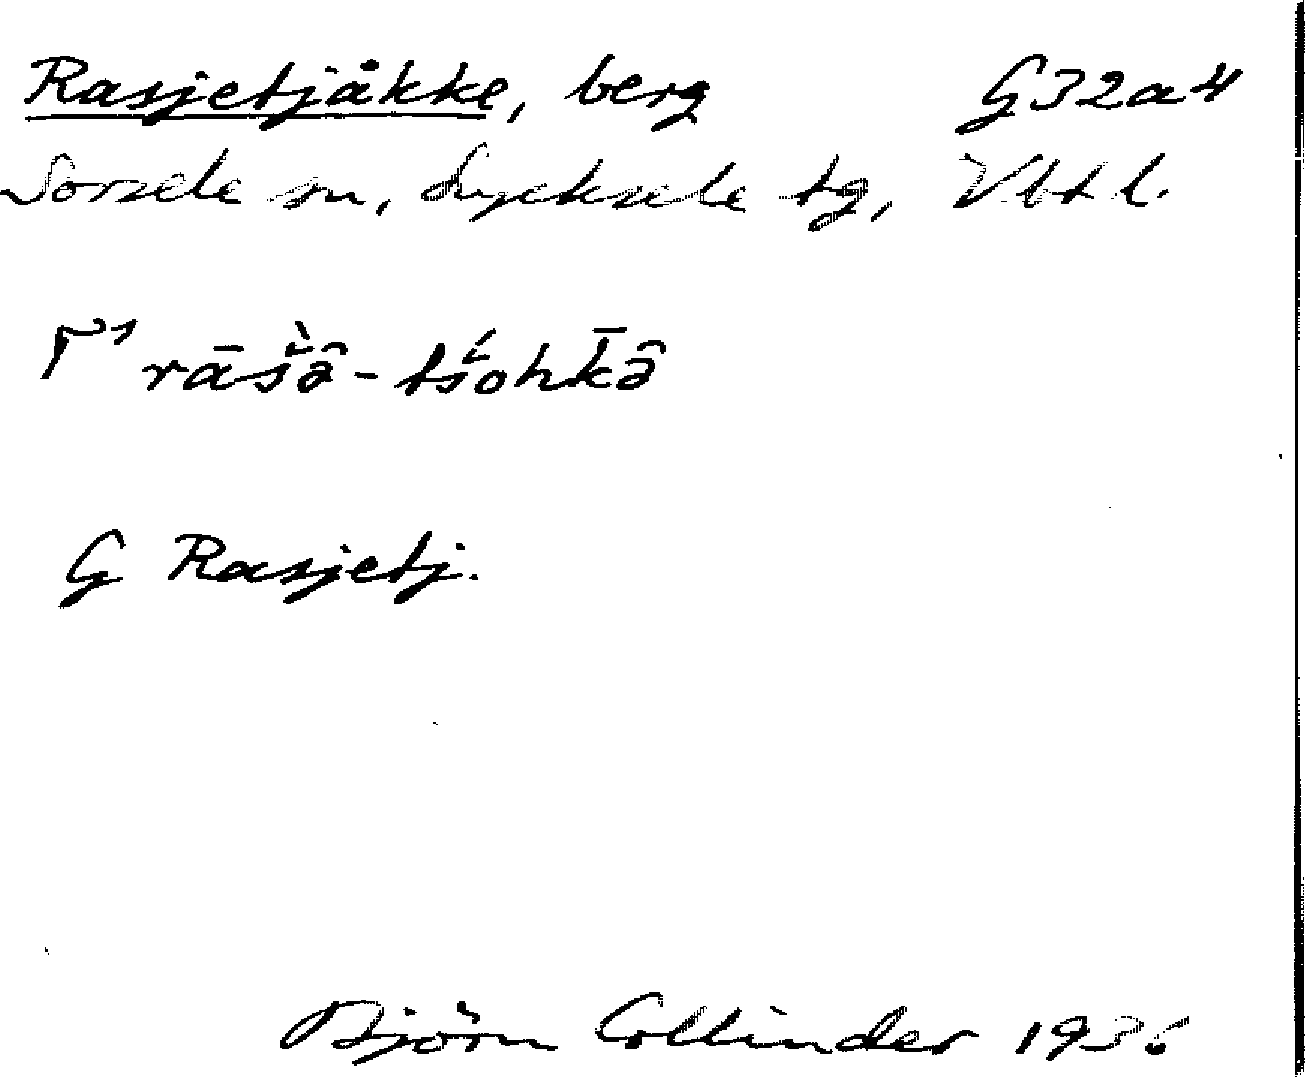 Rasjetjåkke, berg G32a4
Sorsele sn, Lycksele tg, Vbtl.
Γ¹ rāšâ-tśohk̄â
G Rasjetj.
Björn Collinder 1936